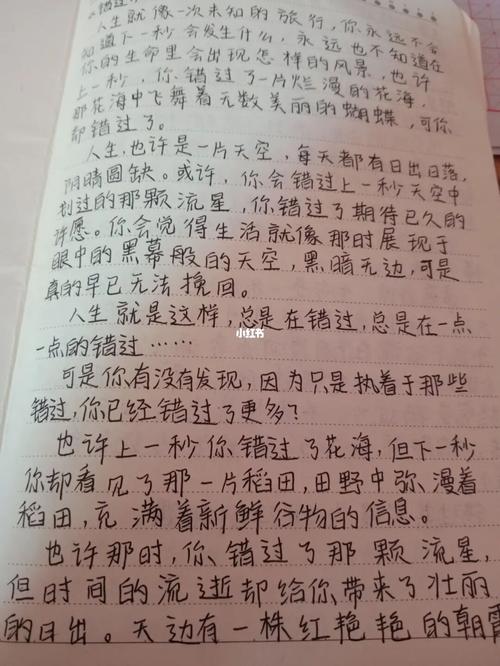 错过
人生就像一次未知的旅行，你永远不会
知道下一秒会发生什么，永远也不知道在
你的生命里会出现怎样的风景，也许
上一秒，你错过了一片烂漫的花海，
那花海中飞舞着无数美丽的蝴蝶，可你
却错过了。
人生，也许是一片天空，每天都有日出日落，
阴晴圆缺。或许，你会错过上一秒天空中
划过的那颗流星，你错过了期待已久的
许愿。你会觉得生活就像那时展现于
眼中的黑幕般的天空，黑暗无边，可是
真的早已无法挽回。
人生就是这样，总是在错过，总是在一点
一点的错过……
小红书
可是你有没有发现，因为只是执着于那些
错过，你已经错过了更多？
也许上一秒你错过了花海，但下一秒
你却看见了那一片稻田，田野中弥漫着
稻田，充满着新鲜谷物的信息。
也许那时，你错过了那颗流星，
但时间的流逝却给你带来了壮丽
的日出。天边有一株红艳艳的朝霞